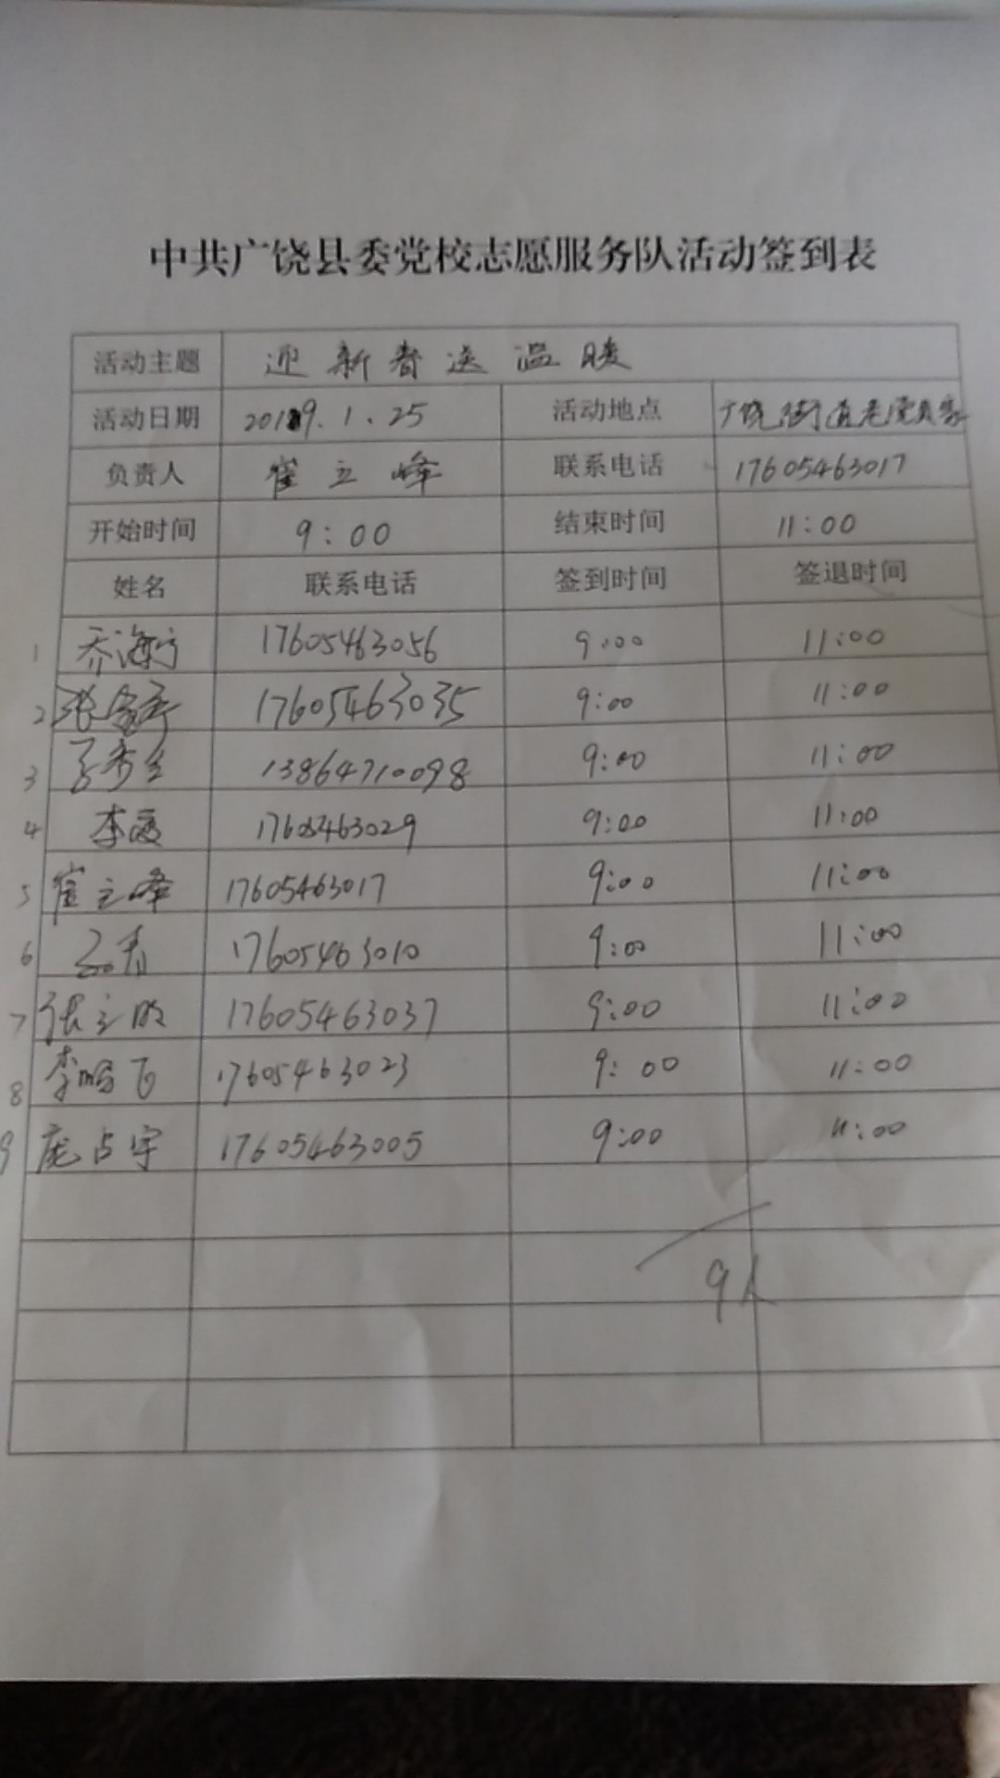 中共广饶县委党校志愿服务队活动签到表
活动主题 迎新春送温暖
活动日期 2019.1.25 活动地点 广饶街道老党员家
负责人 崔立峰 联系电话 17605463017
开始时间 9:00 结束时间 11:00
姓名 联系电话 签到时间 签退时间
1 乔海宁 17605463056 9:00 11:00
2 张 17605463035 9:00 11:00
3 13864710098 9:00 11:00
4 李霞 17605463029 9:00 11:00
5 崔立峰 17605463017 9:00 11:00
6 17605463010 9:00 11:00
7 张立 17605463037 9:00 11:00
8 李鹏飞 17605463023 9:00 11:00
9 庞占宇 17605463005 9:00 11:00
9人